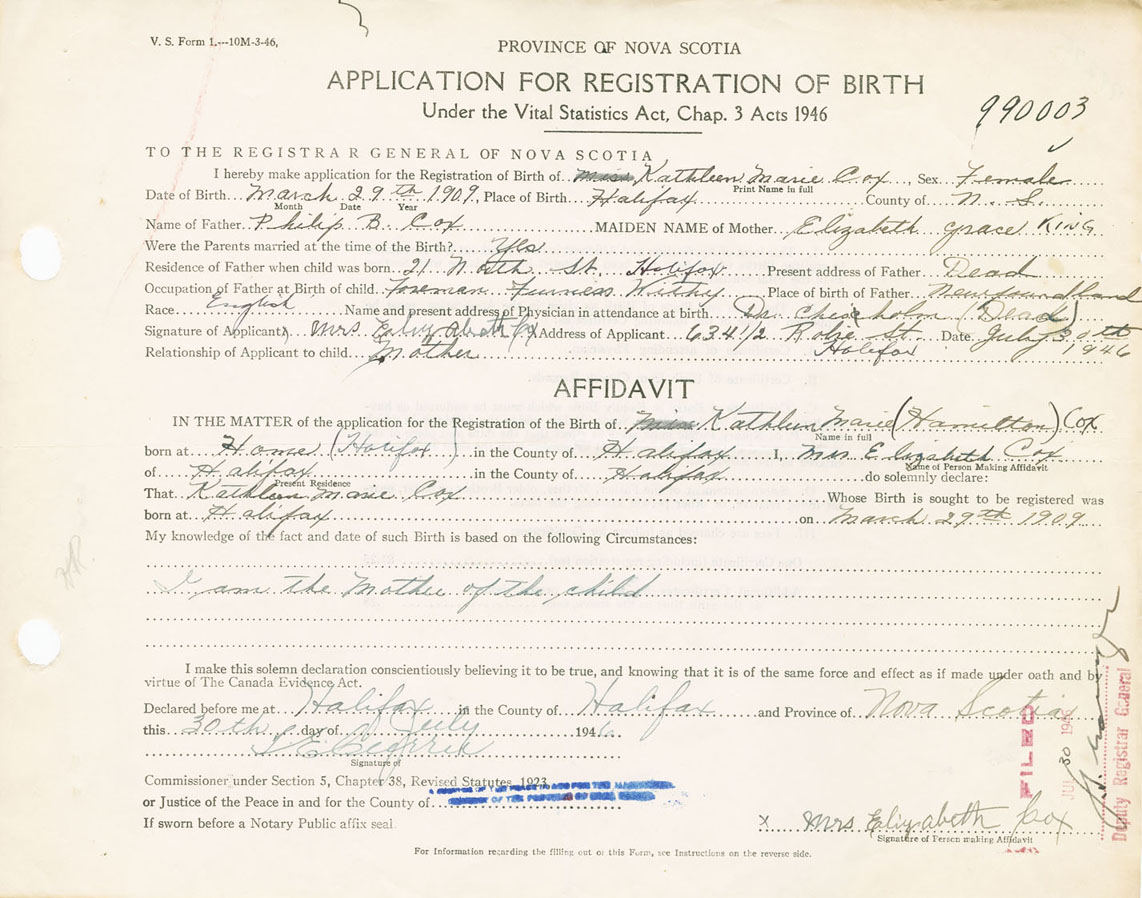 V. S. Form 1.---10M-3-46,
PROVINCE OF NOVA SCOTIA
APPLICATION FOR REGISTRATION OF BIRTH
Under the Vital Statistics Act, Chap. 3 Acts 1946
990003
TO THE REGISTRAR GENERAL OF NOVA SCOTIA
I hereby make application for the Registration of Birth of Kathleen Marie Cox, Sex Female
Print Name in full
Date of Birth March 29th 1909, Place of Birth Halifax County of N. S.
Month Date Year
Name of Father Philip B Cox MAIDEN NAME of Mother Elizabeth grace KING
Were the Parents married at the time of the Birth? Yes
Residence of Father when child was born 21 North St. Halifax Present address of Father Dead
Occupation of Father at Birth of child foreman Furness Withy Place of birth of Father Newfoundland
Race English Name and present address of Physician in attendance at birth Dr. (Dead)
Signature of Applicant Mrs Elizabeth Cox Address of Applicant 634 1/2 Robie St. Date July 30th
Relationship of Applicant to child Mother Halifax 1946
AFFIDAVIT
IN THE MATTER of the application for the Registration of the Birth of Miss Kathleen Marie (Hamilton) Cox
Name in full
born at Home (Halifax) in the County of Halifax I, Mrs Elizabeth Cox
Name of Person Making Affidavit
of Halifax in the County of Halifax do solemnly declare:
Present Residence
That Kathleen Marie Cox Whose Birth is sought to be registered was
born at Halifax on March 29th 1909
My knowledge of the fact and date of such Birth is based on the following Circumstances:
I am the Mother of the child
I make this solemn declaration conscientiously believing it to be true, and knowing that it is of the same force and effect as if made under oath and by
virtue of The Canada Evidence Act.
Declared before me at Halifax in the County of Halifax and Province of Nova Scotia
this 30th day of July 1946
Signature of
Commissioner under Section 5, Chapter 38, Revised Statutes 1923
or Justice of the Peace in and for the County of
If sworn before a Notary Public affix seal
x Mrs Elizabeth Cox
Signature of Person making Affidavit
FILED
JUL 30
Deputy Registrar General
For Information regarding the filling out of this Form, see Instructions on the reverse side.